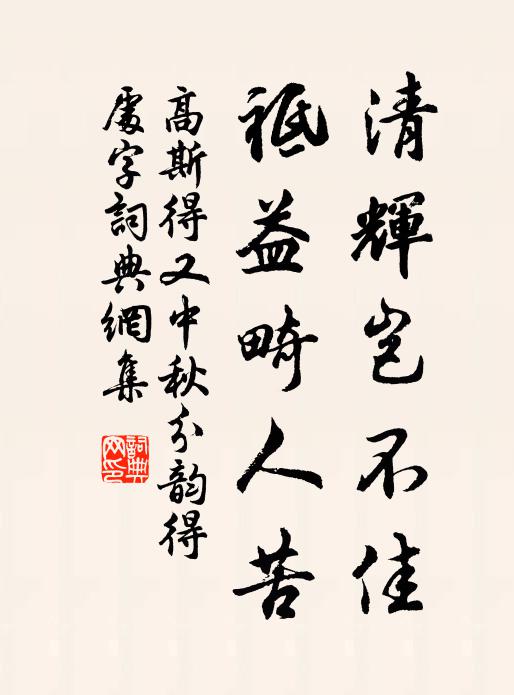 清輝豈不佳
祗益畸人苦
高斯得又中秋分韵得
處字詞典網集
詞典网印